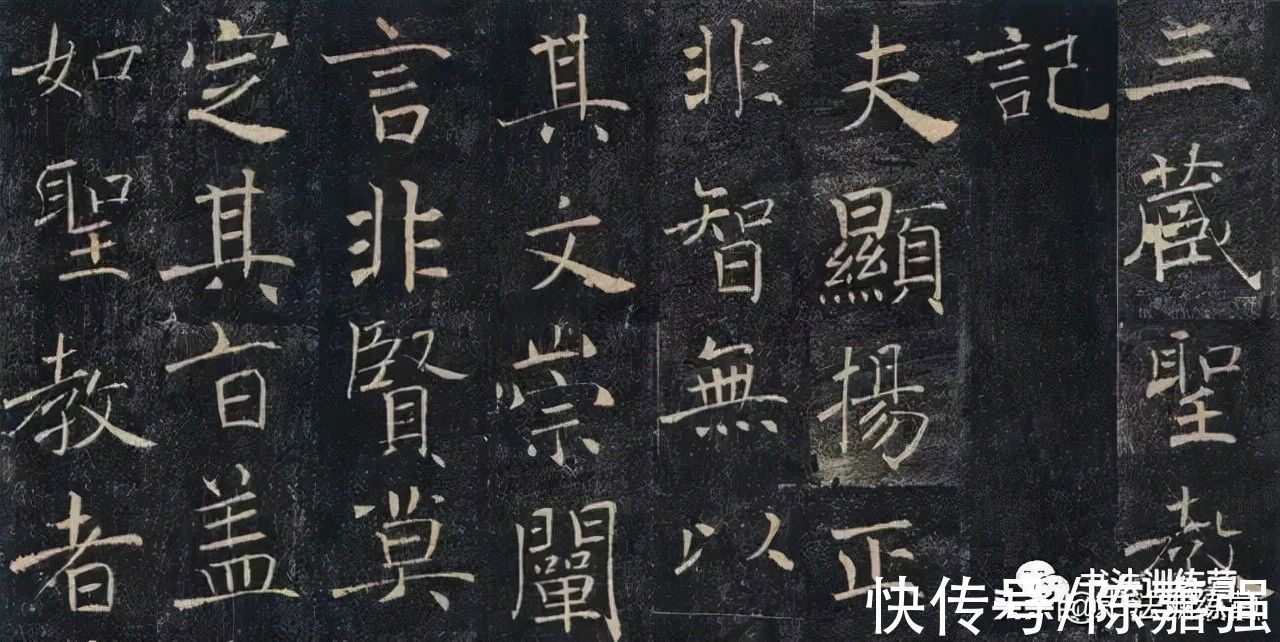 三藏聖教
記
夫顯揚正
非智無以
其文崇闡
言非賢莫
定其旨盖
如聖教者
书法训练营
快传号/陈嘉强